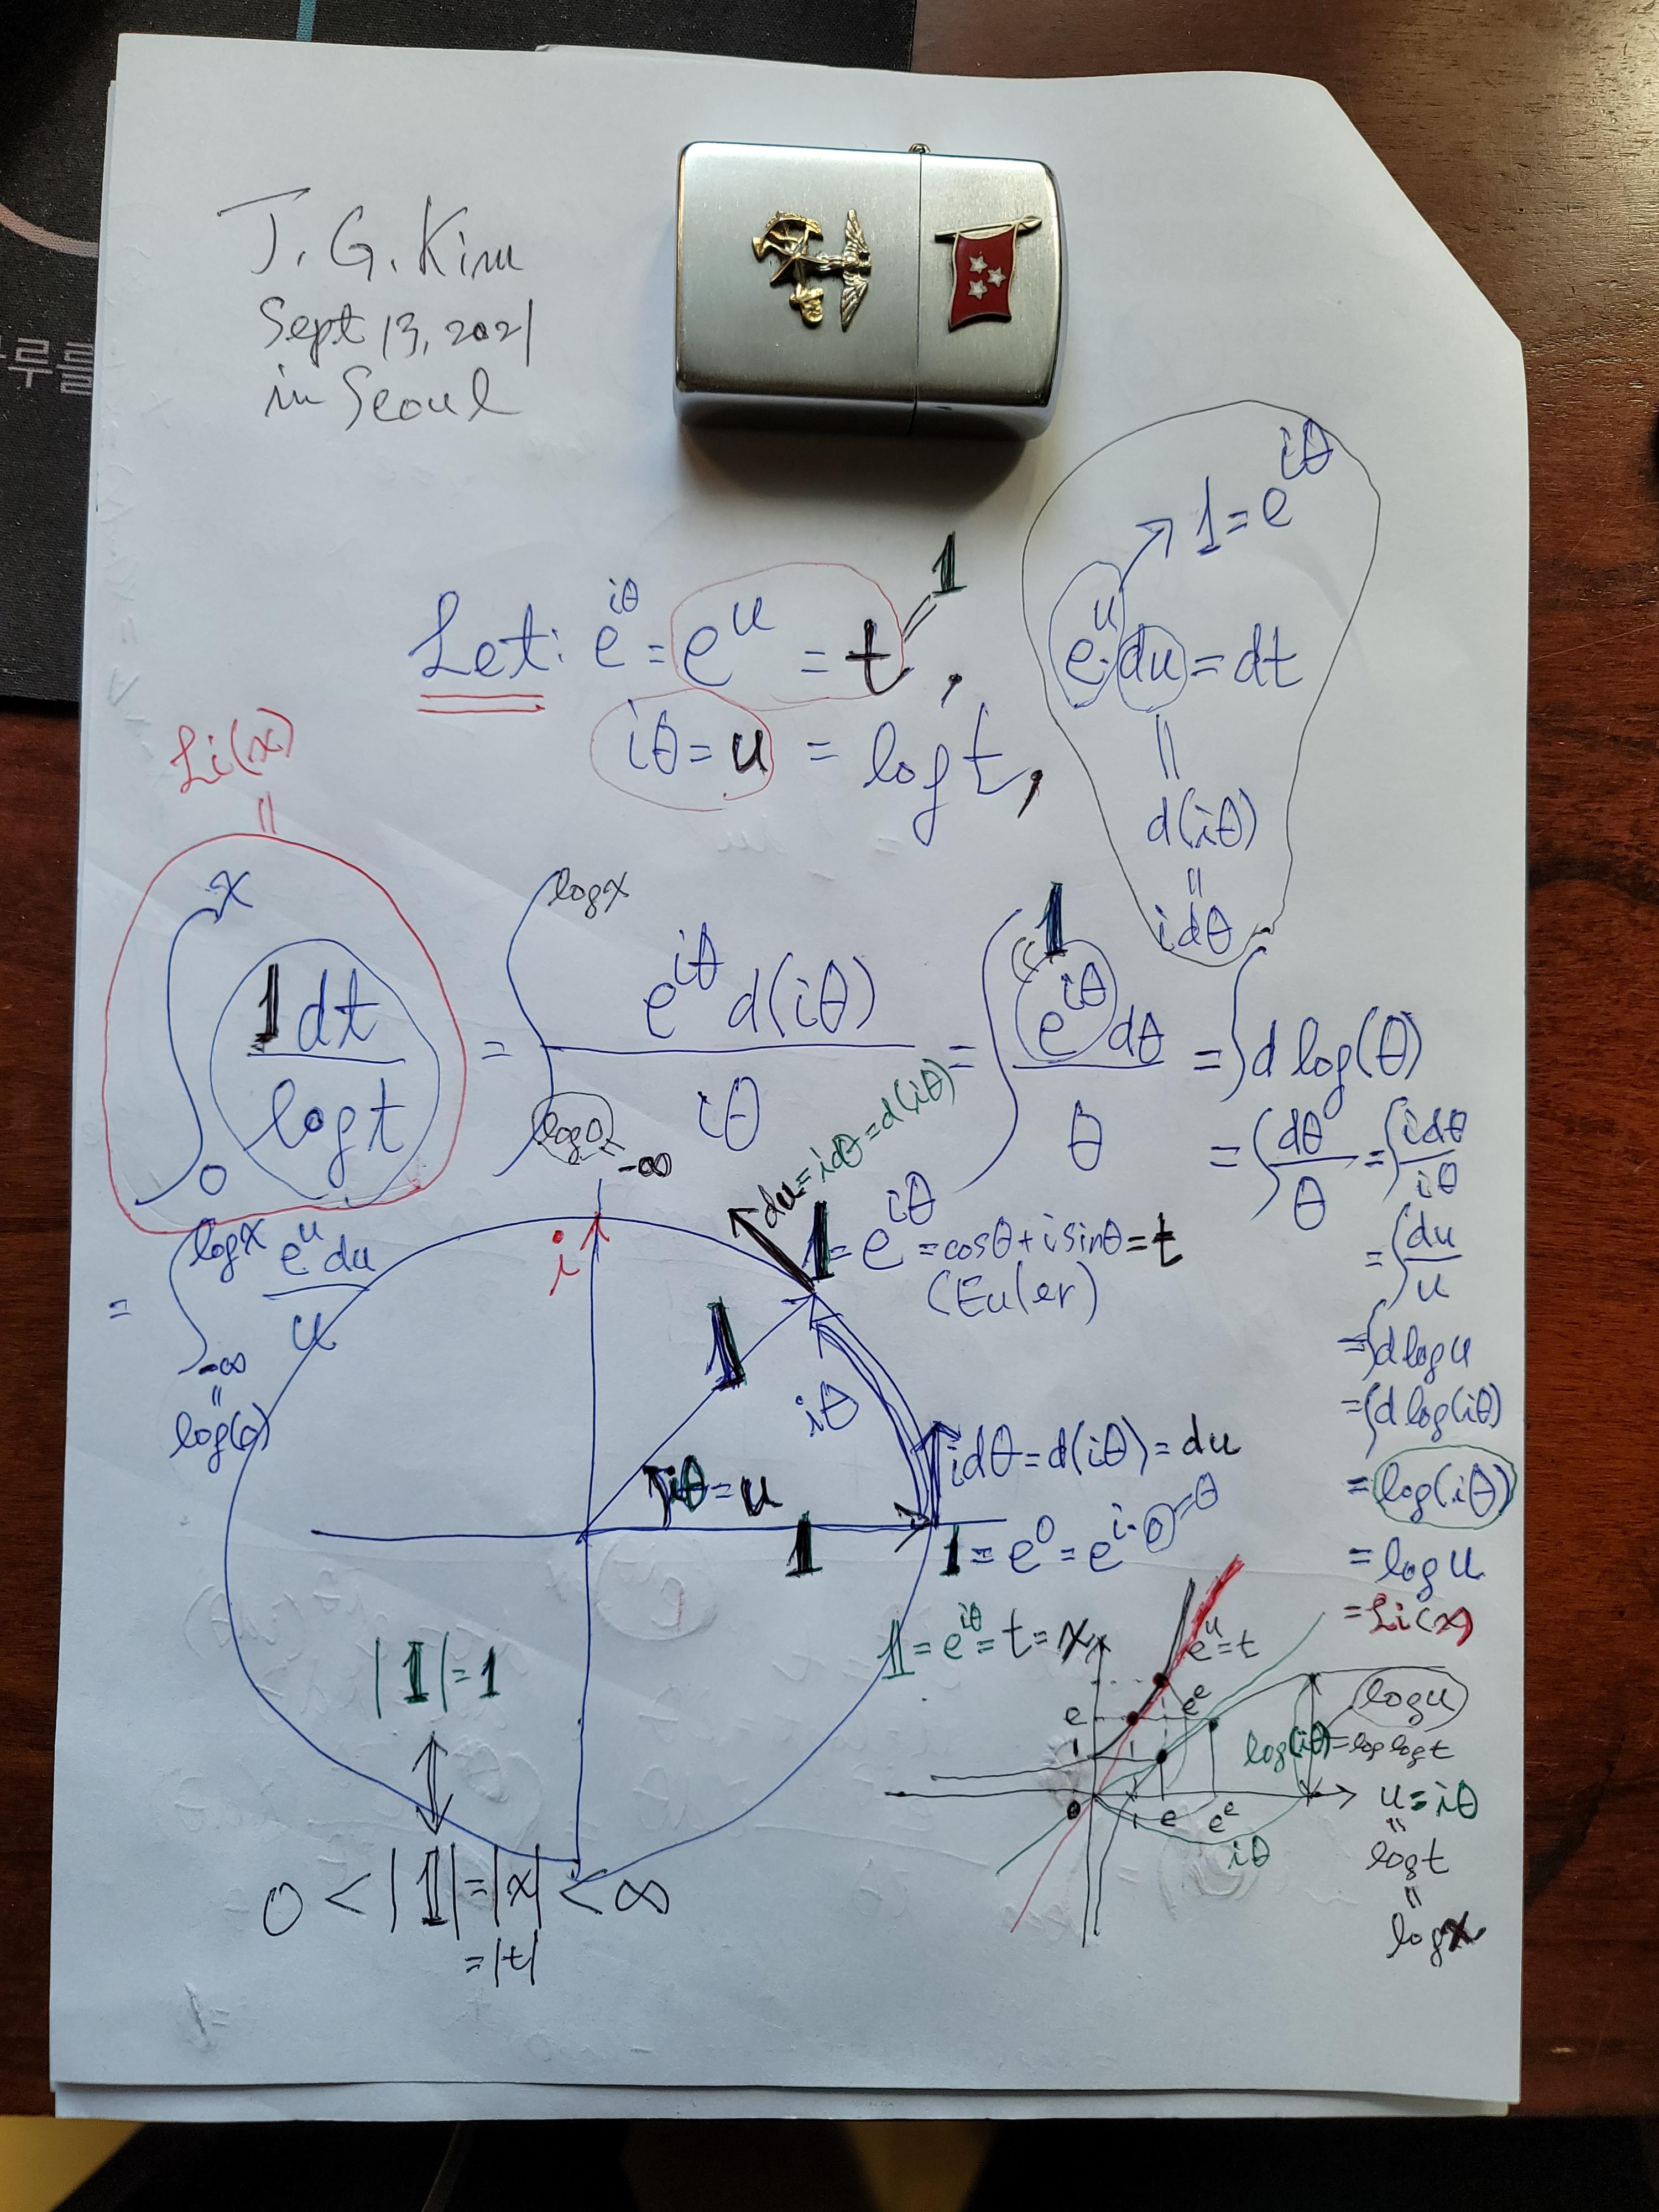 루를
J. G. Kim
Sept 13, 2021
in Seoul
1 = e^{iθ}
e^u · du = dt
||
d(iθ)
||
idθ
Let: e^{iθ} = e^u = t = 1,
iθ = u = log t,
Li(x)
||
∫_0^x 1dt / log t = ∫_{log 0 = -∞}^{log x} e^{iθ} d(iθ) / iθ = ∫ e^{iθ} dθ / θ = ∫ d log(θ)
1
= ∫ dθ / θ = ∫ idθ / iθ
= ∫ du / u
= ∫ d log u
= ∫ d log(iθ)
= log(iθ)
= log u
= Li(x)
= ∫_{-∞}^{log x} e^u du / u
||
log(0)
du = idθ = d(iθ)
i
1 = e^{iθ} = cosθ + i sinθ = t
(Euler)
1
iθ
iθ = u
1
idθ = d(iθ) = du
1 = e^0 = e^{i·0} = θ
|1| = 1
0 < |1| = |x| < ∞
= |t|
1 = e^{iθ} = t = x
e^u = t
e
e^e
1
1
0
1
e
e^e
log u
log(iθ) = log log t
iθ
u = iθ
||
log t
||
log x